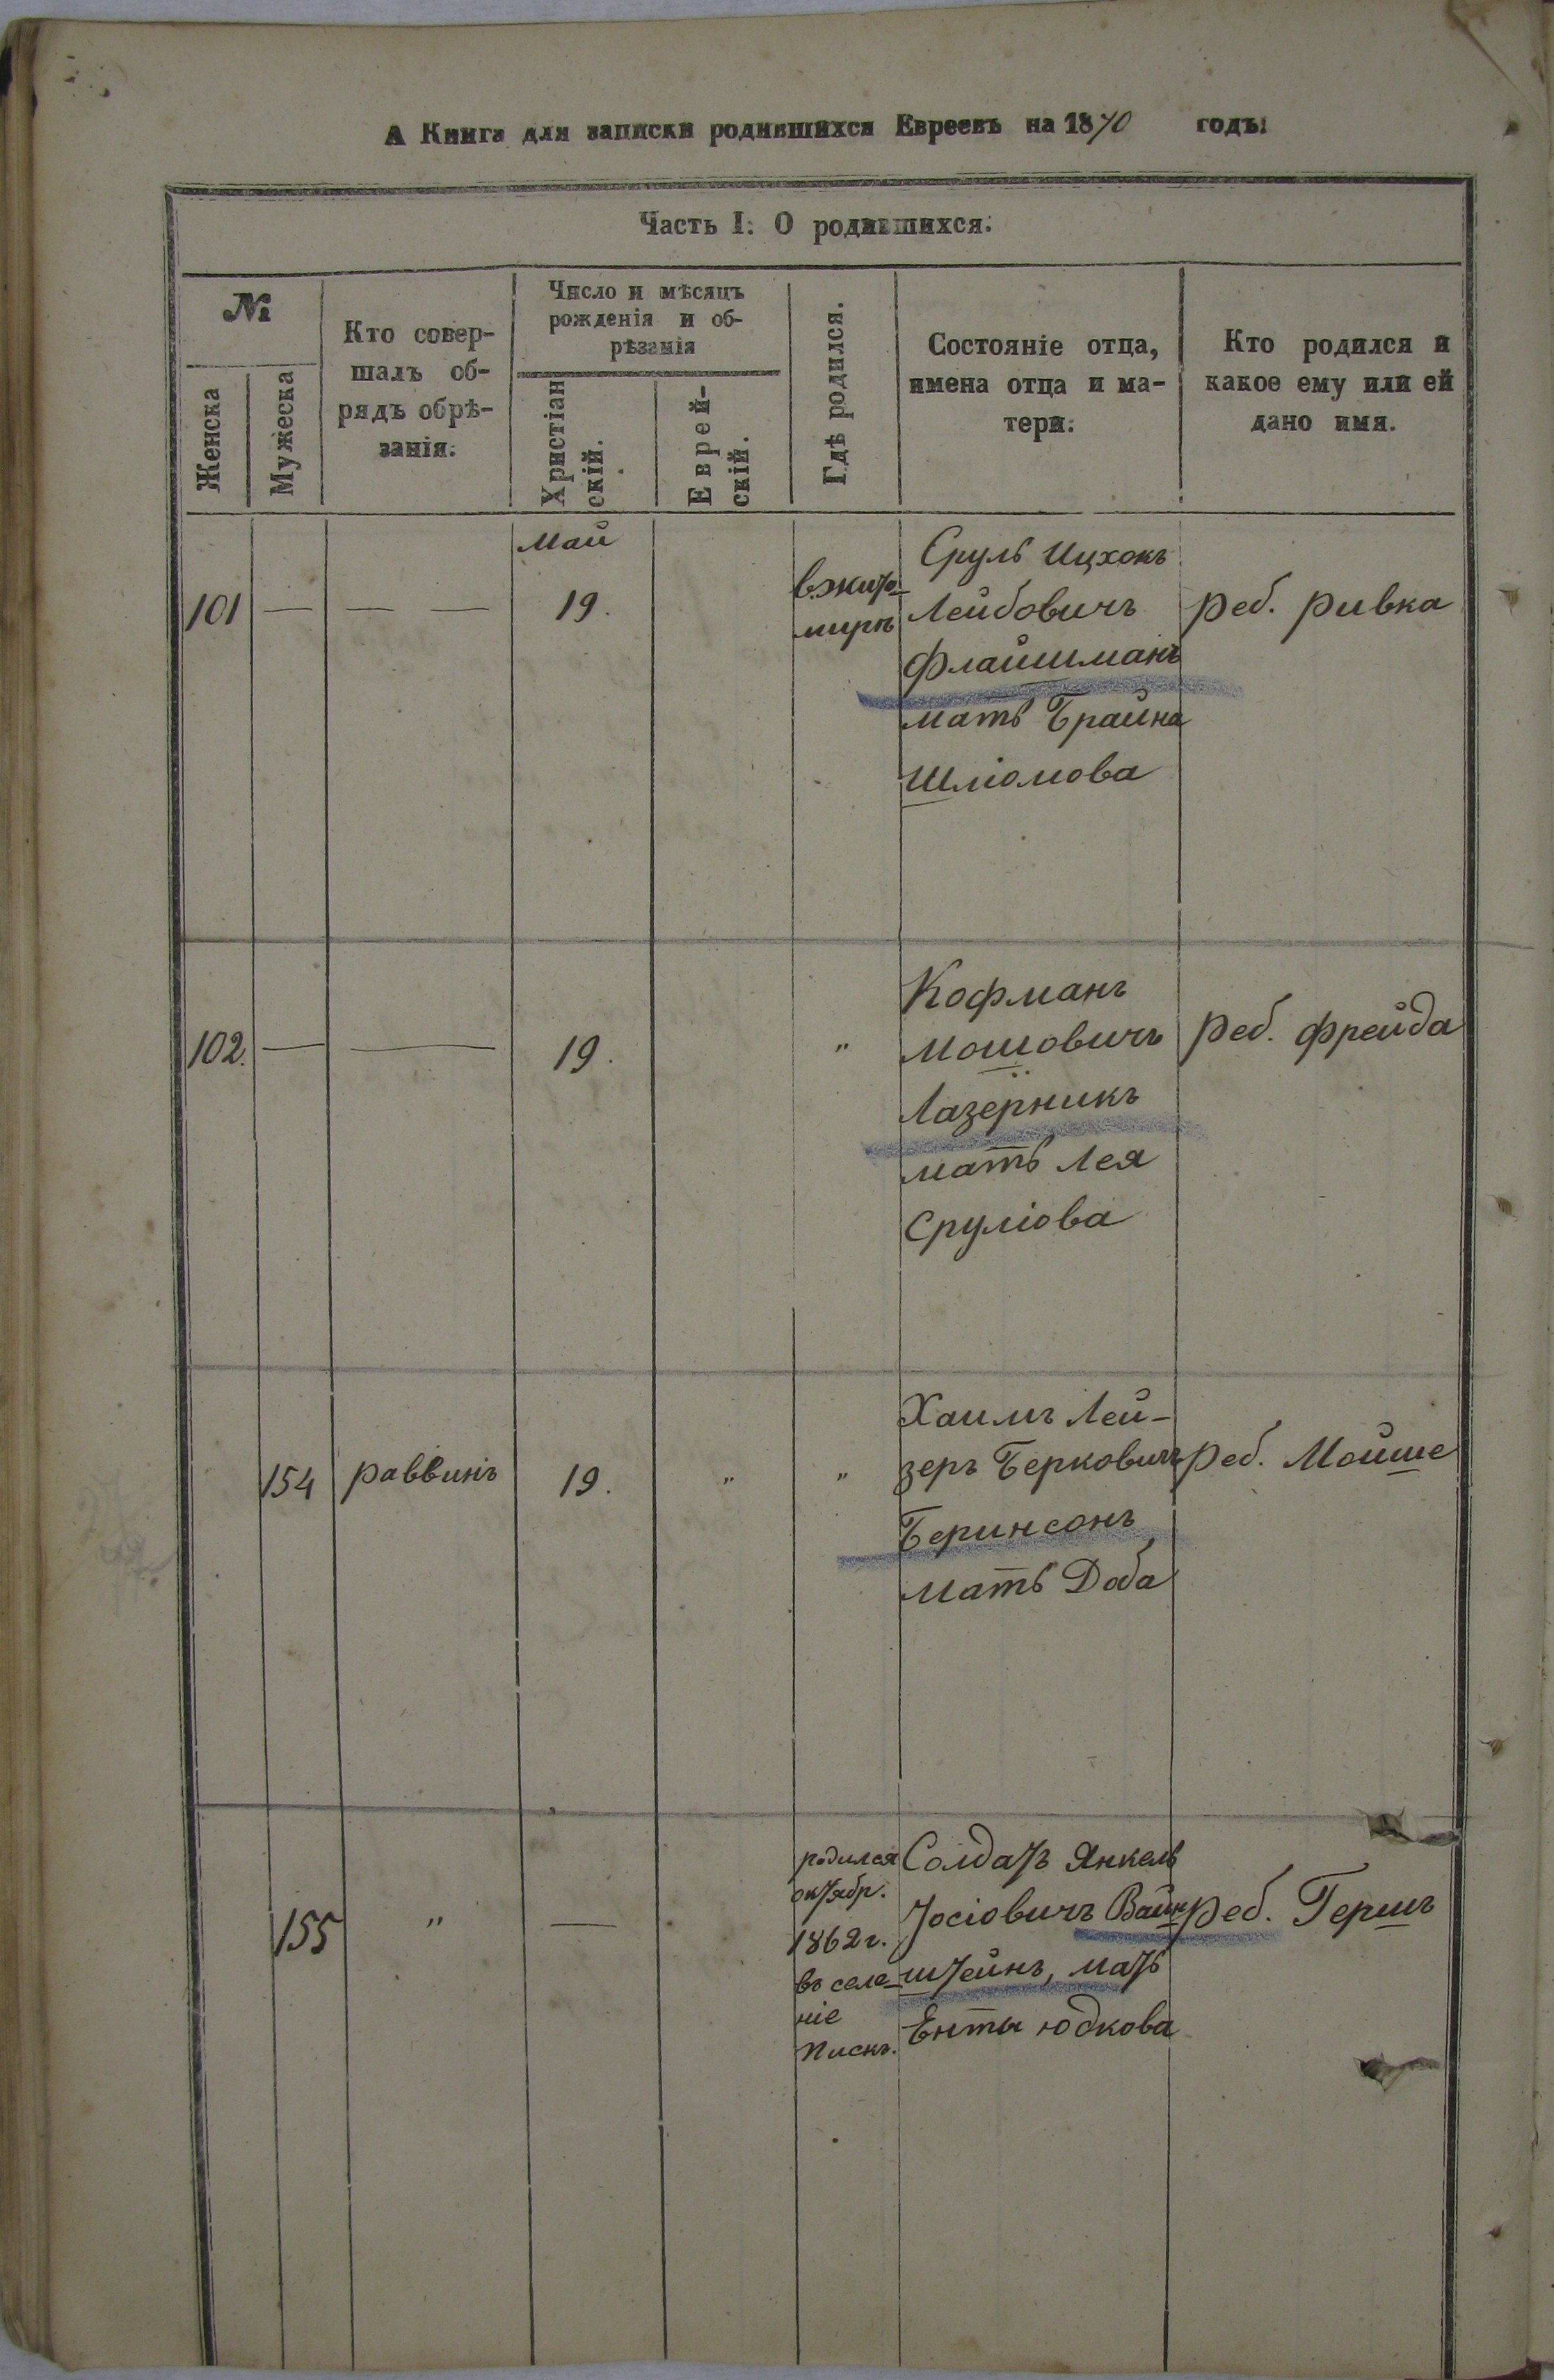 А Книга для записки родившихся Евреевъ на 1870 годъ:
Часть I: О родившихся.
№
Женска
Мужеска
Кто совер-
шалъ об-
рядъ обрѣ-
занія.
Число и мѣсяцъ
рожденія и об-
рѣзанія
Христіан
скій.
Еврей-
скій.
Гдѣ родился.
Состояніе отца,
имена отца и ма-
тери.
Кто родился и
какое ему или ей
дано имя.
Май
101 — — — 19.
в.жито-
мирѣ
Сруль Ицхокъ
Лейбовичъ
Флайшманъ
мать Брайна
Шліомова
реб. Ривка
102. — — 19. "
Кофманъ
Мошовичъ
Лазерникъ
мать Лея
Сруліова
реб. Фрейда
154 раввинъ 19. " "
Хаимъ Лей-
зеръ Берковичъ
Беринсонъ
мать Доба
реб. Мойше
155 " —
родился
октябр.
1862 г.
въ селе-
ніе
Пискъ.
Солдатъ Янкель
Іосіовичъ Вайн
штейнъ, мать
Енты Юдкова
реб. Гершъ